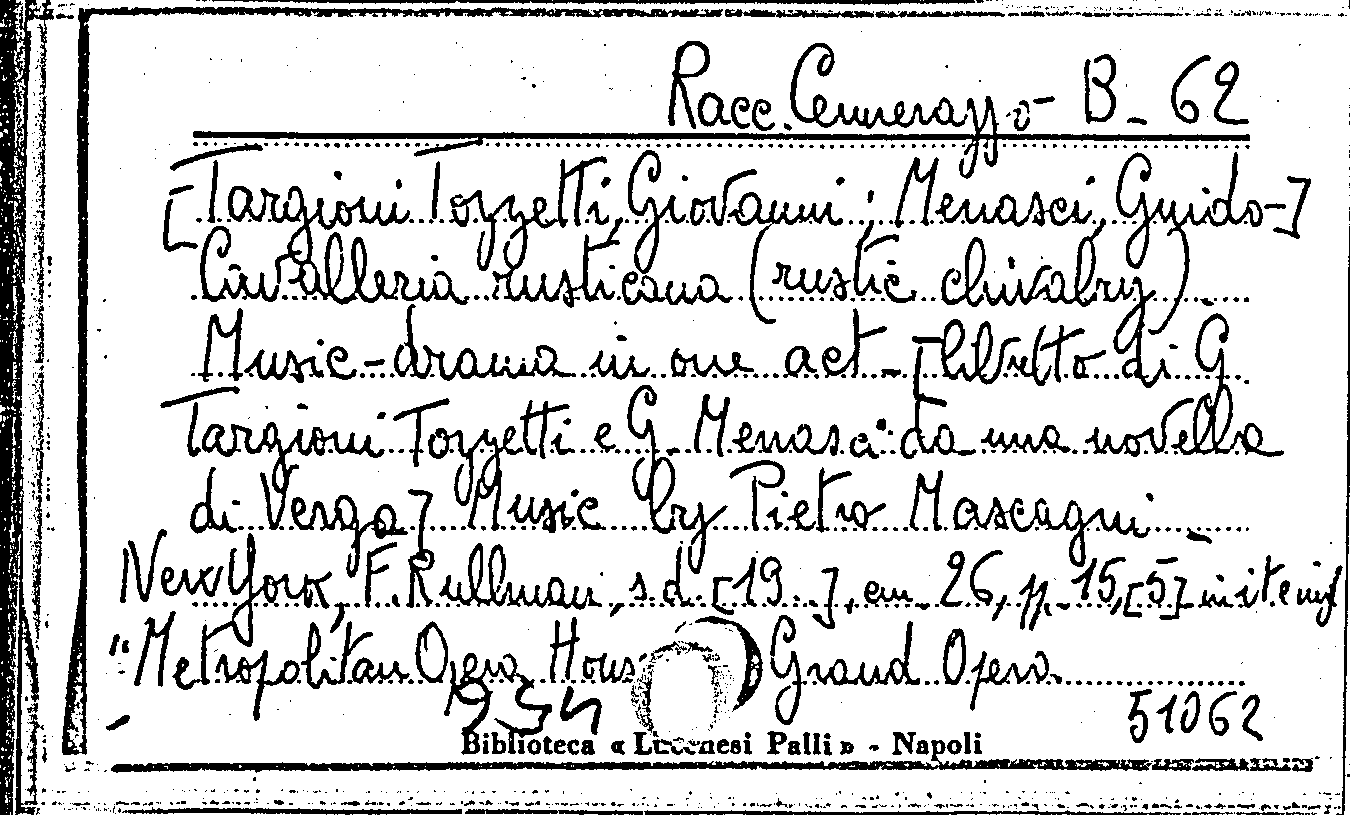 Racc. Cennerazzo - B - 62
[Targioni Tozzetti, Giovanni ; Menasci, Guido -]
Cavalleria rusticana (rustic chivalry) .
Music-drama in one act - [libretto di G
Targioni Tozzetti e G. Menasci da una novella
di Verga] Music by Pietro Mascagni -
New York, F. Rullman, s.d. [19..], cm. 26, pp. 15, [5] in it e ingl
"Metropolitan Opera House Grand Opera
934
51062
Biblioteca « Lucchesi Palli » - Napoli